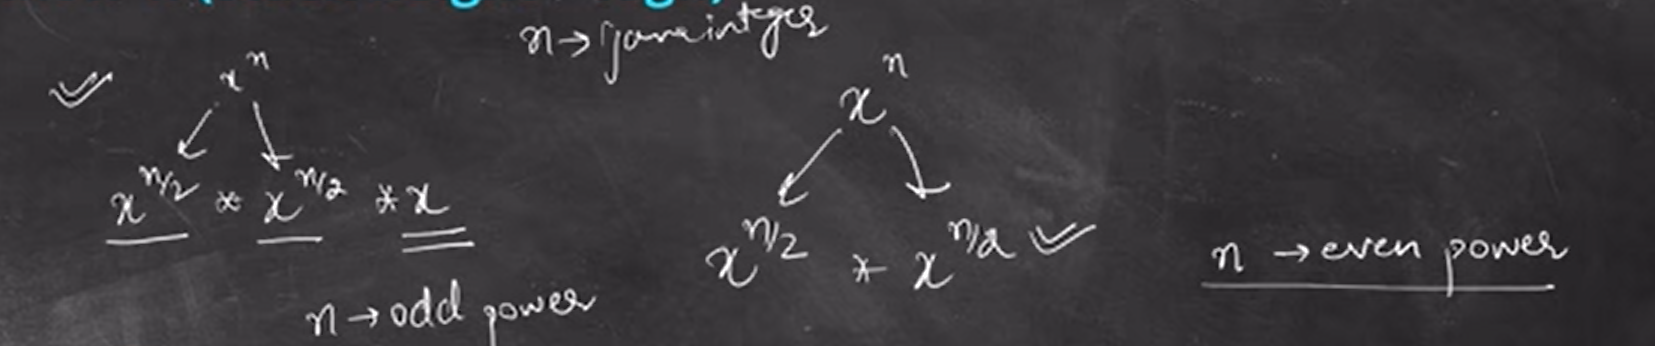 n → java integer
x^n
x^n/2 * x^n/2 * x
n → odd power
x^n
x^n/2 * x^n/2
n → even power